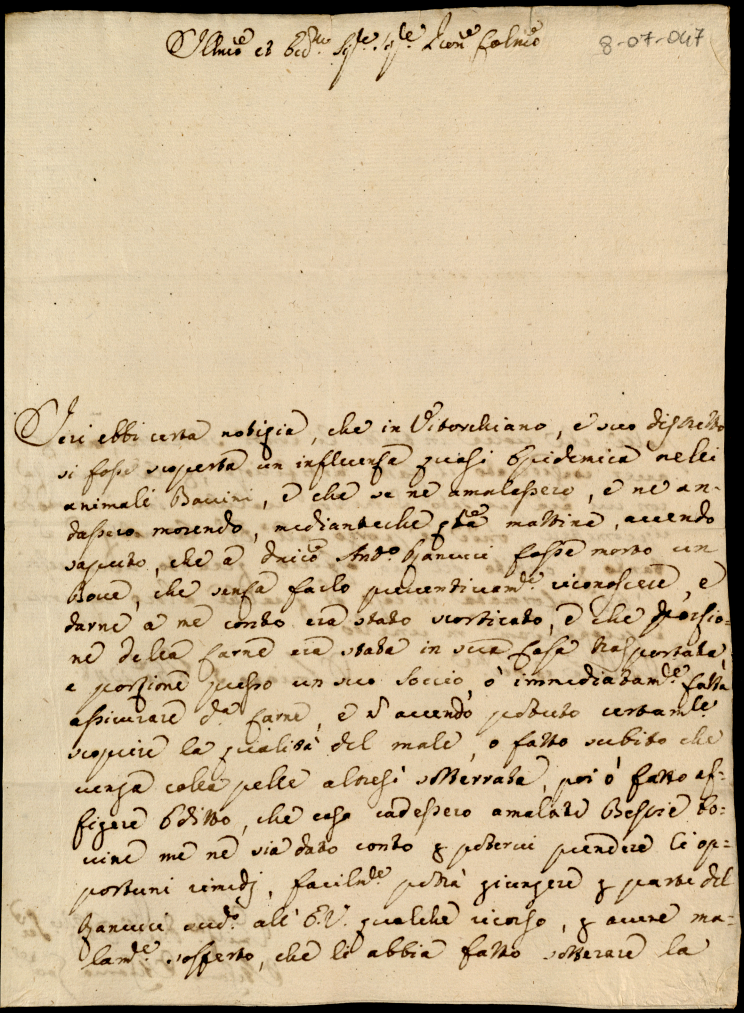 Illmo et Ecc.mo Sig.re Sig.re Pron.e Colmo
8-07-047
Ieri ebbi certa notizia, che in Vitorchiano, e suo distretto
si fosse scoperta un influenza quasi Epidemica nelli
animali Baccini, e che se ne amalassero, e ne an-
dassero morendo, mediante che q.ta mattina, avendo
saputo, che a Dnico Ant.o Zanucci fosse morto un
Bove, che senza farlo preventivam.e riconoscere, e
darne a me conto era stato scorticato, e che porzio=
ne della Carne era stata in sua Casa trasportata,
e porzione presso un suo soccio, ò immediatam.e fatta
assicurare d.a Carne, e n avendo potuto certam.te
scoprire la qualità del male, o fatto subito che
venga colla pelle altresì sotterrata, poi ò fatto af=
figere Editto, che caso cadessero amalate Bestie bo=
vine me ne sia dato conto p potervi prendere li op=
portuni rimedj, facilm.te potrà giungere p parte del
Zanucci aud.o all' E.V. qualche ricorso, p avere ma=
lam.e sofferto, che li abbia fatto sotterare la